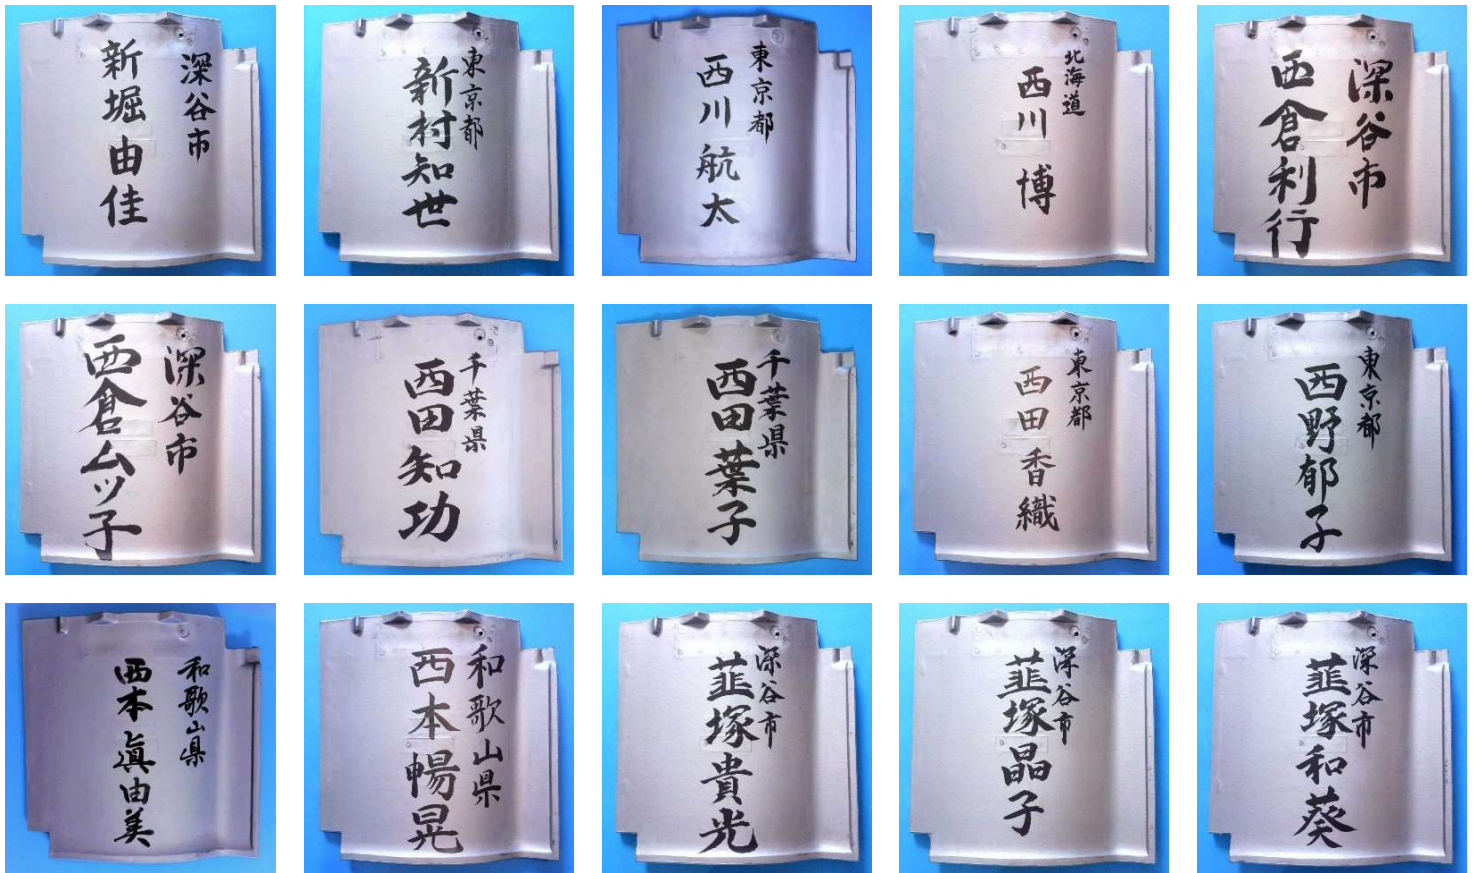 深谷市
新堀由佳
東京都
新村知世
東京都
西川航太
北海道
西川博
深谷市
西倉利行
深谷市
西倉ムツ子
千葉県
西田知功
千葉県
西田葉子
東京都
西田香織
東京都
西野郁子
和歌山県
西本眞由美
和歌山県
西本暢晃
深谷市
韮塚貴光
深谷市
韮塚晶子
深谷市
韮塚和葵